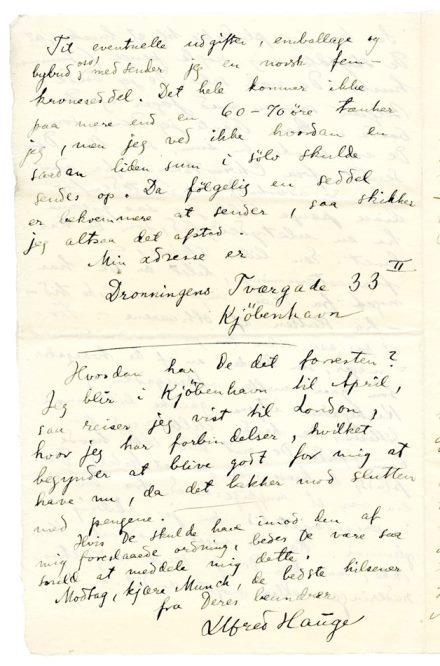 Til eventuelle udgifter, emballage og
bybud osv. medsender jeg en norsk fem-
kroneseddel. Det hele kommer ikke
paa mere end en 60-70 öre tænker
jeg, men jeg ved ikke hvordan en
saadan liden sum i sölv skulde
sendes op. Da fölgelig en seddel
er bekvemmere at sender, saa skikker
jeg altsaa det afsted.
Min adresse er
Dronningens Tværgade 33 II
Kjöbenhavn
Hvordan har De det forresten?
Jeg blir i Kjöbenhavn til April,
saa reiser jeg vist til London,
hvor jeg har forbindelser, hvilket
begynder at blive godt for mig at
have nu, da det lakker mod slutten
med pengene.
Hvis De skulde have imod den af
mig foreslaaede ordning, bedes De være saa
snild at meddele mig dette.
Modtag, kjære Munch, de bedste hilsener
fra Deres beundrer
Alfred Hauge